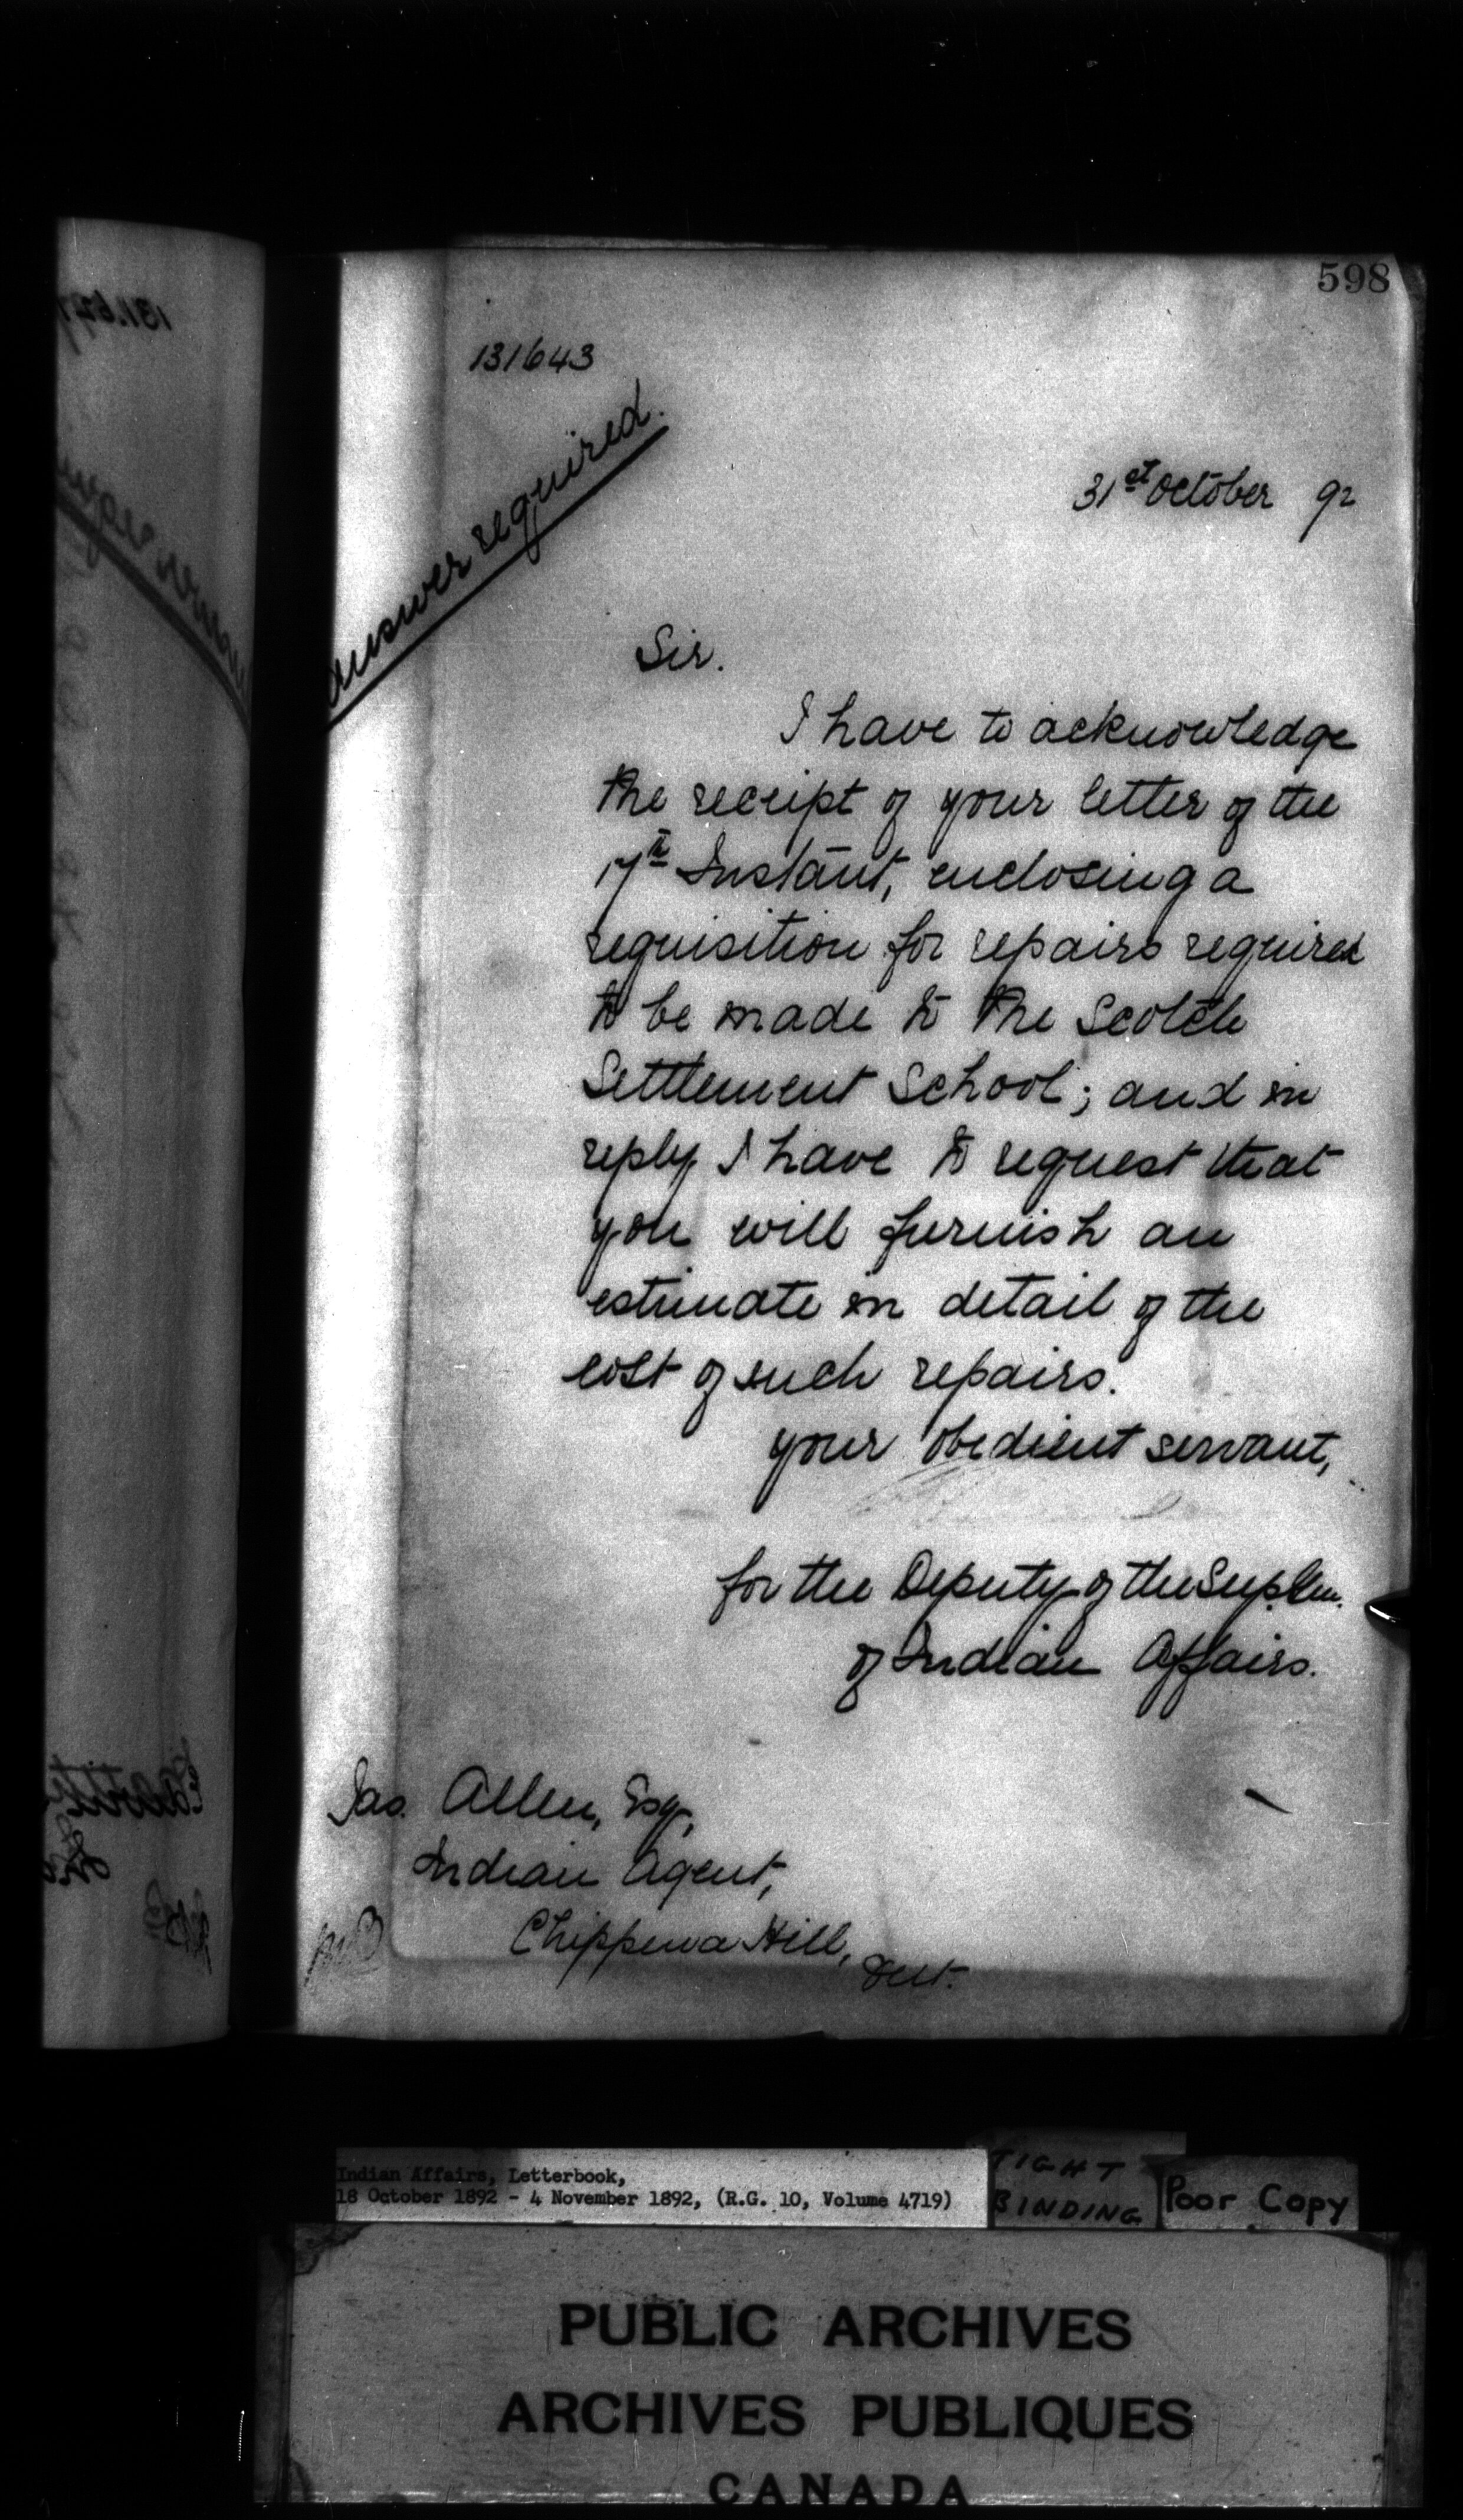 598
131643
Answer required.
31st October 92
Sir.
I have to acknowledge
the receipt of your letter of the
17th Instant, enclosing a
requisition for repairs required
to be made to the Scotch
Settlement School; and in
reply I have to request that
you will furnish an
estimate in detail of the
cost of such repairs.
your obedient servant,
for the Deputy of the Sup. Gen.
of Indian Affairs.
Jas. Allen, Esq,
Indian Agent,
Chippewa Hill,
Ont.
MB
Indian Affairs, Letterbook,
18 October 1892 - 4 November 1892, (R.G. 10, Volume 4719)
TIGHT
BINDING
Poor Copy
PUBLIC ARCHIVES
ARCHIVES PUBLIQUES
CANADA